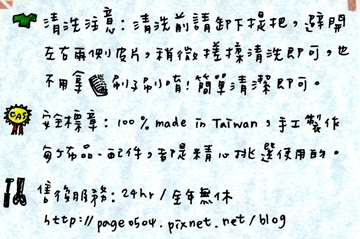 清洗注意：清洗前請卸下提把，避開
左右兩側皮片，稍微搓揉清洗即可，也
不用拿刷子刷唷！簡單清潔即可。
CAS 安全標章：100% made in Taiwan，手工製作
每个布品、配件，都是精心挑選使用的。
售後服務：24hr / 全年無休
http://page0504.pixnet.net/blog